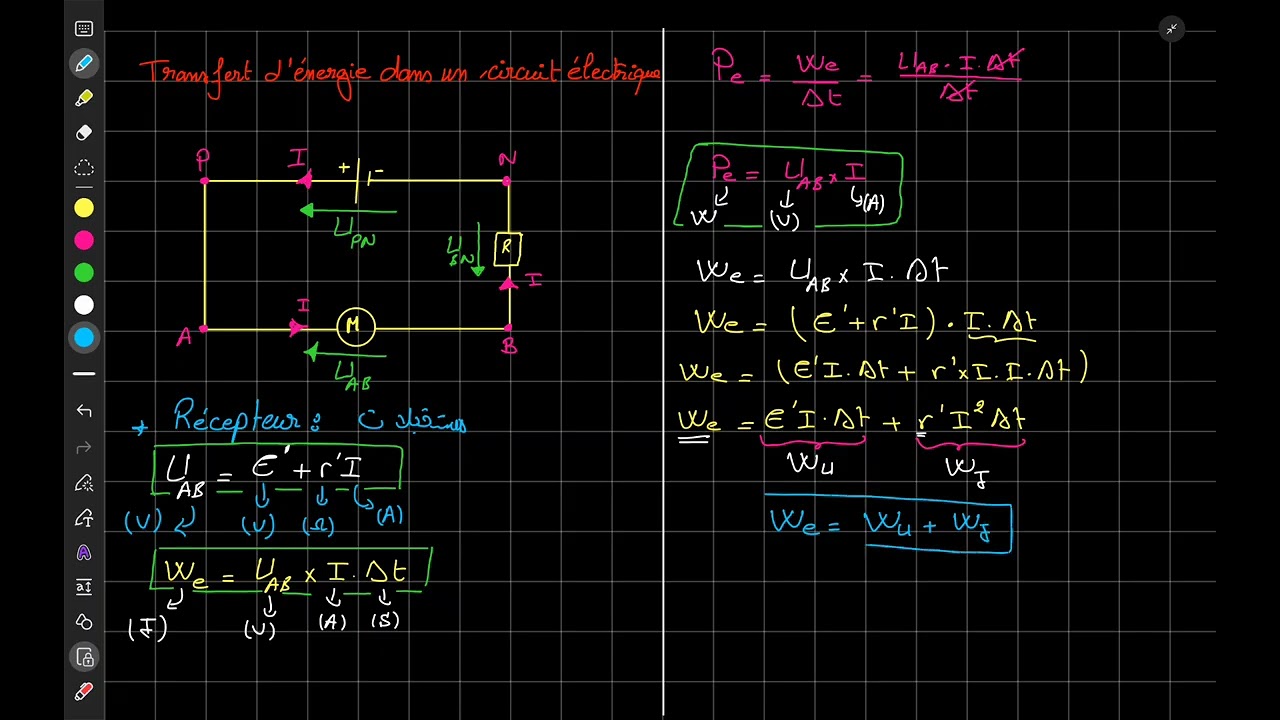 Transfert d'énergie dans un circuit électrique
P I + - N
U_PN
U_BN R
I
I
A M B
U_AB
+ Récepteur : مستقبلات
U_AB = E' + r'I
(V) (V) (Ω) (A)
We = U_AB × I . Δt
(J) (V) (A) (S)
Pe = We / Δt = U_AB . I . Δt / Δt
Pe = U_AB × I
W (V) (A)
We = U_AB × I . Δt
We = (E' + r'I) . I . Δt
We = (E'I . Δt + r' × I . I . Δt)
We = E'I . Δt + r'I² Δt
Wu WJ
We = Wu + WJ